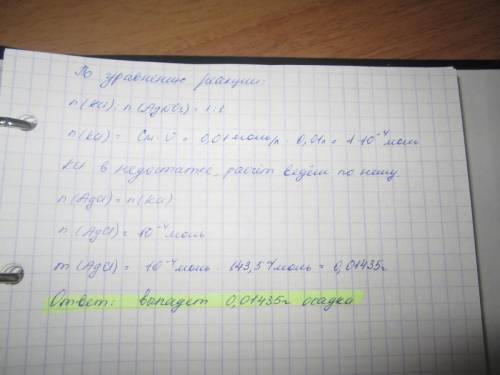 По уравнению реакции:
n(KCl) : n(AgNO₃) = 1:1
n(KCl) = Cм · V = 0,01 моль/л · 0,01л = 1·10⁻⁴ моль
KCl в недостатке, расчёт ведём по нему
n(AgCl) = n(KCl)
n(AgCl) = 10⁻⁴ моль
m(AgCl) = 10⁻⁴ моль · 143,5 г/моль = 0,01435г
Ответ: выпадет 0,01435г осадка